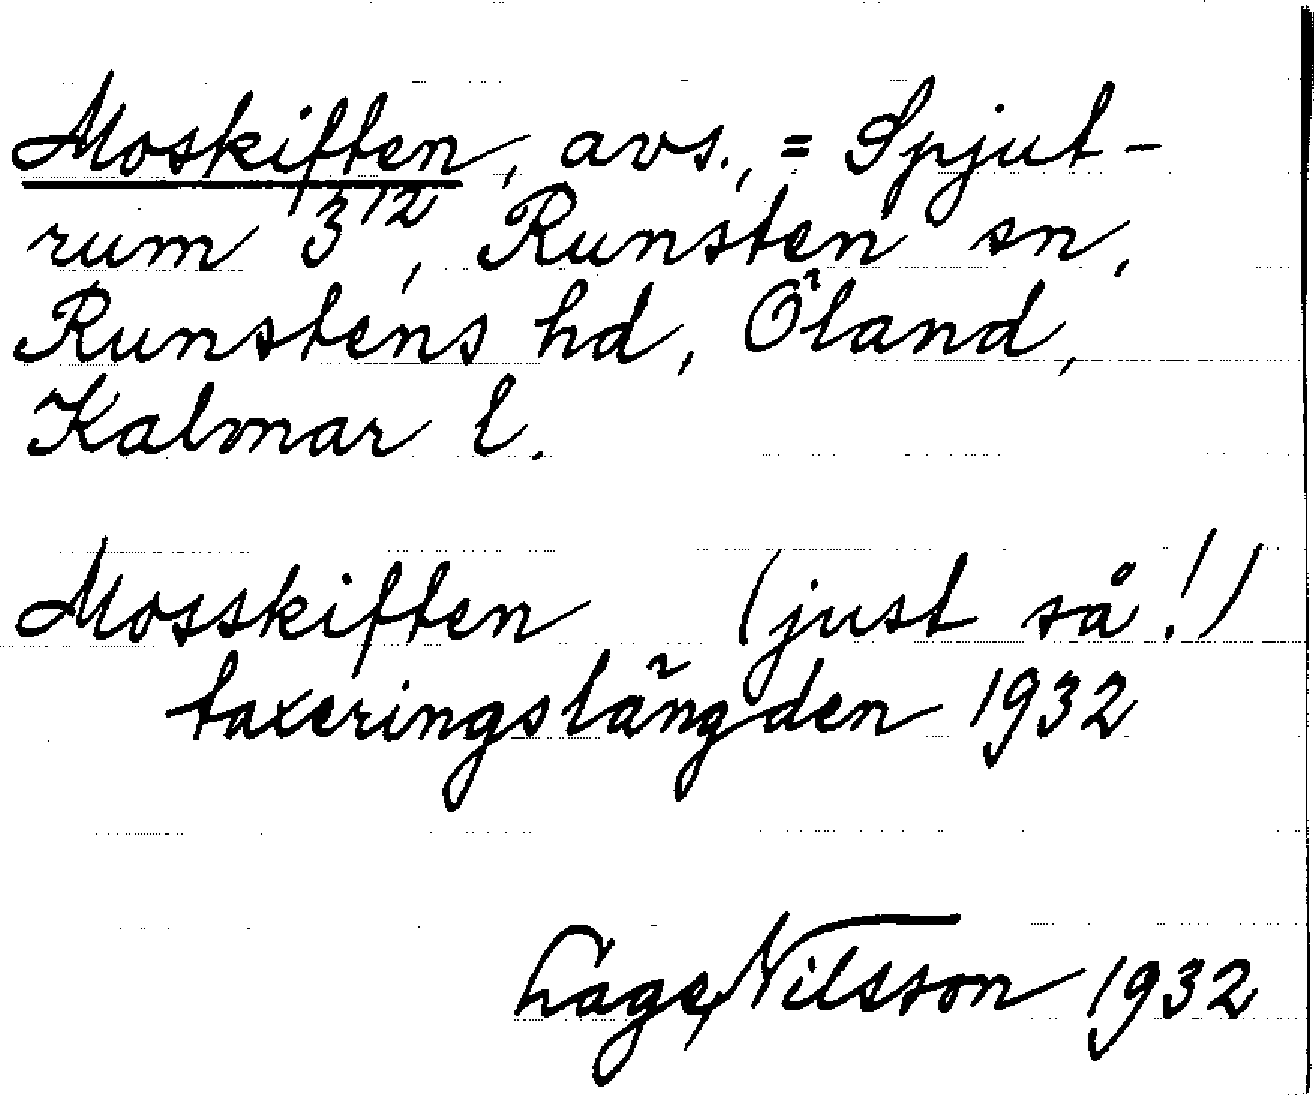 Moskiften, avs., = Spjut-
rum 3¹², Runsten sn,
Runstens hd, Öland,
Kalmar l.
Mosskiften (just så!)
taxeringslängden 1932
Lage Nilsson 1932